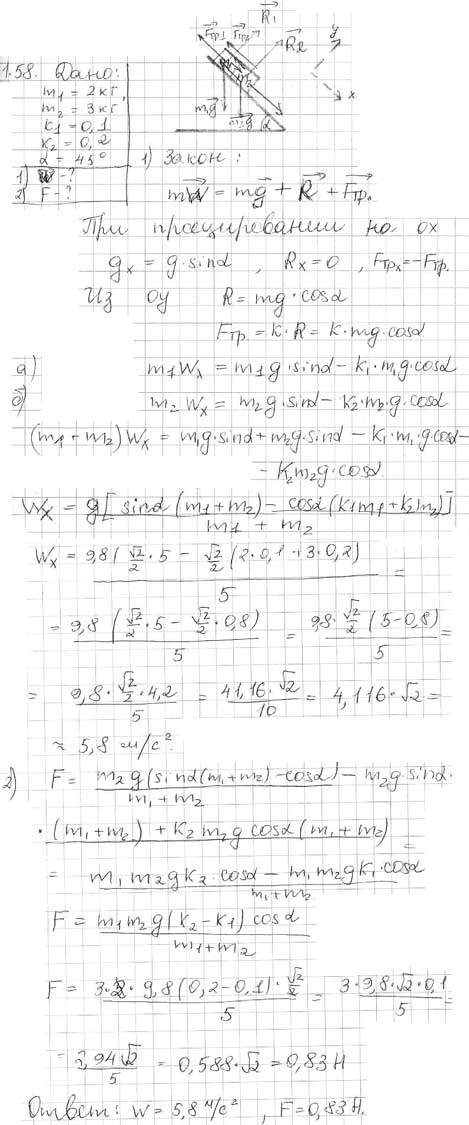 R₁
Fтр1 Fтр2 y
R₂
1.58. Дано:
m₁ m₂
m₁ = 2кг,
m₁g m₂g α x
m₂ = 3кг
k₁ = 0,1
k₂ = 0,2
α = 45°
1) Закон:
1) W - ?
2) F - ?
mW = mg + R + Fтр.
При проецировании на ох
gₓ = g·sinα , Rₓ = 0 , Fтрₓ = -Fтр.
Из оу R = mg·cosα
Fтр. = k·R = k·mg·cosα
а) m₁Wₓ = m₁g·sinα - k₁·m₁g·cosα
б) m₂Wₓ = m₂g·sinα - k₂·m₂·g·cosα
(m₁ + m₂)Wₓ = m₁g·sinα + m₂g·sinα - k₁·m₁·g·cosα -
- k₂m₂g·cosα
Wₓ = g[sinα(m₁ + m₂) - cosα(k₁m₁ + k₂m₂)] / m₁ + m₂
Wₓ = 9,8(√2/2·5 - √2/2(2·0,1 + 3·0,2) / 5 =
= 9,8(√2/2·5 - √2/2·0,8) / 5 = 9,8·√2/2(5 - 0,8) / 5 =
= 9,8·√2/2·4,2 / 5 = 41,16·√2 / 10 = 4,116·√2 =
≈ 5,8 м/с².
2) F = m₂g(sinα(m₁ + m₂) - cosα) - m₂g·sinα· / m₁ + m₂
·(m₁ + m₂) + k₂m₂g cosα(m₁ + m₂) =
= m₁m₂gk₂·cosα - m₁m₂gk₁·cosα / m₁ + m₂
F = m₁m₂g(k₂ - k₁)cosα / m₁ + m₂
F = 3·2·9,8(0,2 - 0,1)·√2/2 / 5 = 3·9,8·√2·0,1 / 5 =
= 2,94√2 / 5 = 0,588·√2 = 0,83 Н
Ответ: W = 5,8 м/с² , F = 0,83 Н.